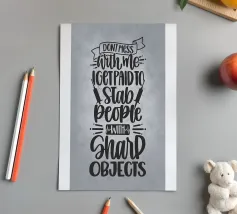 DON'T MESS
with me
I GET PAID TO
Stab
people
WITH
Sharp
OBJECTS